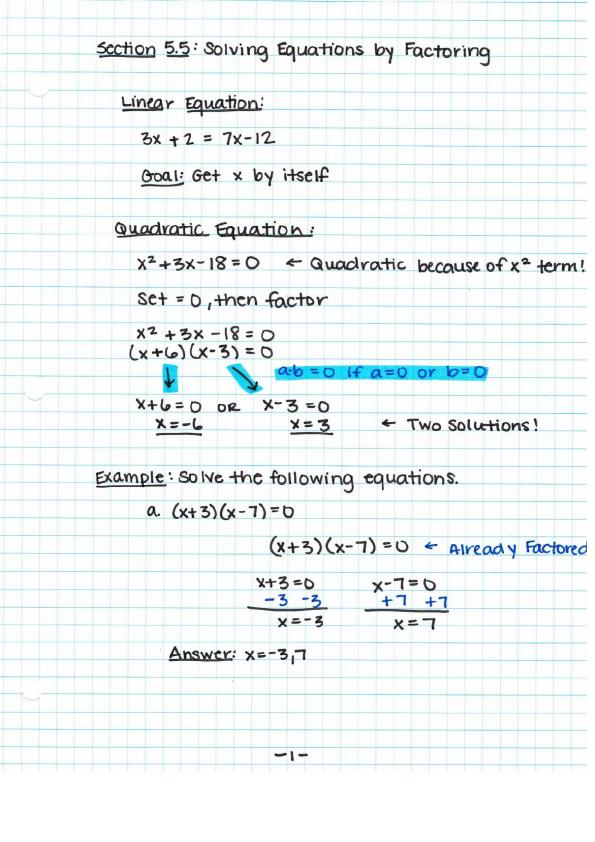 Section 5.5: Solving Equations by Factoring
Linear Equation:
3x + 2 = 7x-12
Goal: Get x by itself
Quadratic Equation:
x²+3x-18=0 ← Quadratic because of x² term!
Set = 0, then factor
x² +3x -18 = 0
(x+6)(x-3) = 0
a·b = 0 if a=0 or b=0
x+6=0 OR x-3=0
x=-6 x=3 ← Two Solutions!
Example: Solve the following equations.
a. (x+3)(x-7)=0
(x+3)(x-7)=0 ← Already Factored
x+3=0 x-7=0
-3 -3 +7 +7
x=-3 x=7
Answer: x=-3,7
-1-